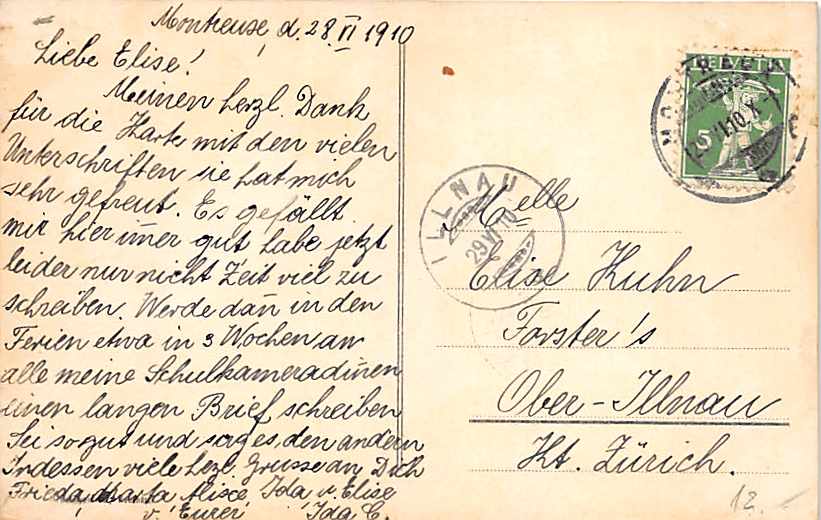 Montreuse, d. 28 VI 1910
Liebe Elise!
Meinen herzl. Dank
für die Karte mit den vielen
Unterschriften sie hat mich
sehr gefreut. Es gefällt
mir hier im̅er gut habe jetzt
leider nur nicht Zeit viel zu
schreiben. Werde dan̅ in den
Ferien etwa in 3 Wochen an
alle meine Schulkameradin̅en
einen langen Brief schreiben
Sei so gut und sag es, den andern
Indessen viele herzl. Grüsse an Dich
Frieda, Martha Alice, Ida v. Elise
v. Eurer Ida C.
HELVETIA
5
ILLNAU
29 VI 10
Melle
Elise Kuhn
Forster's
Ober-Illnau
Kt. Zürich.
12.-